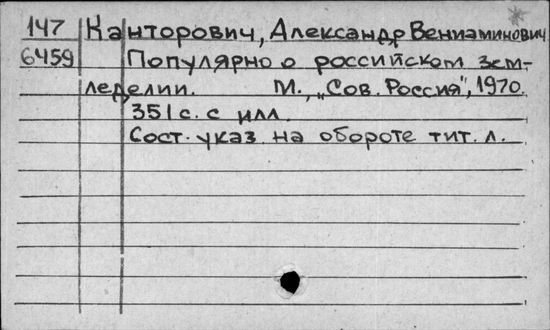 147 Канторович, Александр Вениаминович
6459 Популярно о российском зем-
леделии. М., „Сов. Россия", 1970.
351 с. с илл.
Сост. указ. на обороте тит. л.